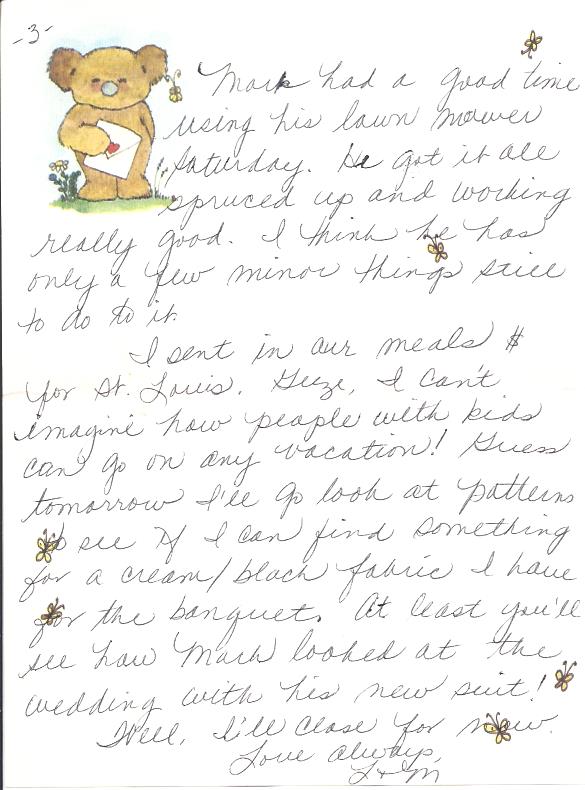 -3-
Mark had a good time
using his lawn mower
Saturday. He got it all
spruced up and working
really good. I think he has
only a few minor things still
to do to it.
I sent in our meals $
for St. Louis. Geeze, I can't
imagine how people with kids
can go on any vacation! Guess
tomorrow I'll go look at patterns
to see if I can find something
for a cream/black fabric I have
for the banquet. At least you'll
see how Mark looked at the
wedding with his new suit!
Well, I'll close for now.
Love always,
L+M